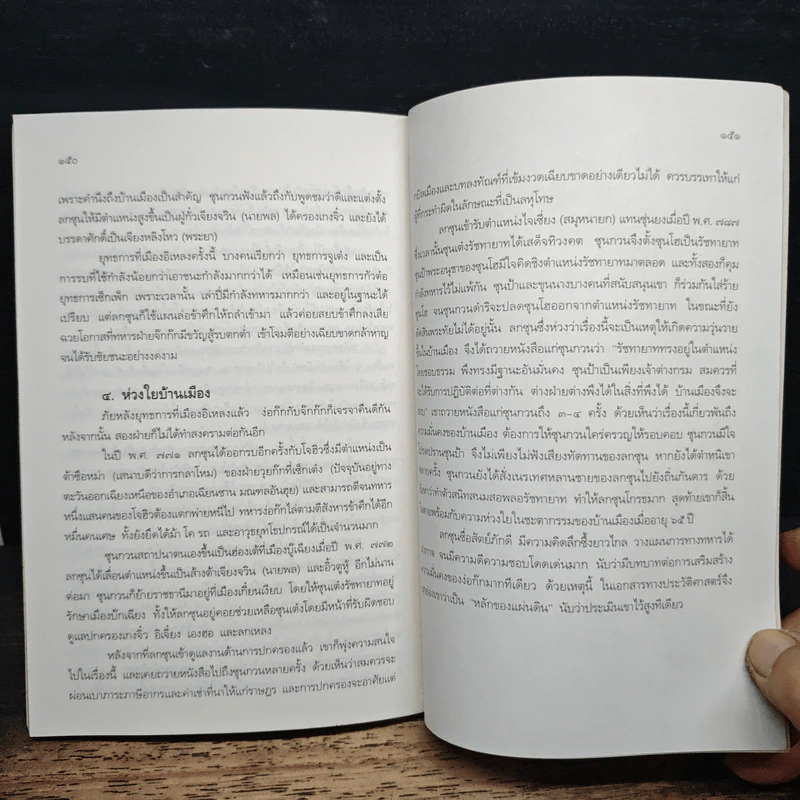 ๑๕๐
เพราะคำนึงถึงบ้านเมืองเป็นสำคัญ ซุนกวนฟังแล้วถึงกับพูดชมว่าดีและแต่งตั้ง
ลกซุนให้มีตำแหน่งสูงขึ้นเป็นฝู่กั๋วเจียงจวิน (นายพล) ได้ครองเกงจิ๋ว และยังได้
บรรดาศักดิ์เป็นเจียงหลิงโหว (พระยา)
ยุทธการที่เมืองอิเหลงครั้งนี้ บางคนเรียกว่า ยุทธการจูเต๋ง และเป็น
การรบที่ใช้กำลังน้อยกว่าเอาชนะกำลังมากกว่าได้ เหมือนเช่นยุทธการกัวต๋อ
ยุทธการเซ็กเพ็ก เพราะเวลานั้น เล่าปี่มีกำลังทหารมากกว่า และอยู่ในฐานะได้
เปรียบ แต่ลกซุนก็ใช้แผนล่อข้าศึกให้ถลำเข้ามา แล้วค่อยสยบข้าศึกลงเสีย
ฉวยโอกาสที่ทหารฝ่ายจ๊กก๊กมีขวัญสู้รบตกต่ำ เข้าโจมตีอย่างเฉียบขาดกล้าหาญ
จนได้รับชัยชนะอย่างงดงาม
๔. ห่วงใยบ้านเมือง
ภัยหลังยุทธการที่เมืองอิเหลงแล้ว ง่อก๊กกับจ๊กก๊กก็เจรจาคืนดีกัน
หลังจากนั้น สองฝ่ายก็ไม่ได้ทำสงครามต่อกันอีก
ในปี พ.ศ. ๗๗๑ ลกซุนได้ออกรบอีกครั้งกับโจฮิวซึ่งมีตำแหน่งเป็น
ต้าซือหม่า (เสนาบดีว่าการกลาโหม) ของฝ่ายวุยก๊กที่เซ็กเต๋ง (ปัจจุบันอยู่ทาง
ตะวันออกเฉียงเหนือของอำเภอเฉียนซาน มณฑลอันฮุย) และสามารถตีจนทหาร
หนึ่งแสนคนของโจฮิวต้องแตกพ่ายหนีไป ทหารง่อก๊กไล่ตามตีสังหารข้าศึกได้อีก
หมื่นคนเศษ ทั้งยังยึดได้ม้า โค รถ และอาวุธยุทโธปกรณ์ได้เป็นจำนวนมาก
ซุนกวนสถาปนาตนเองขึ้นเป็นฮ่องเต้ที่เมืองบู๊เฉียงเมื่อปี พ.ศ. ๗๗๒
ลกซุนได้เลื่อนตำแหน่งขึ้นเป็นส้างต้าเจียงจวิน (นายพล) และอิ้วตูหู้ อีกไม่นาน
ต่อมา ซุนกวนก็ย้ายราชธานีมาอยู่ที่เมืองเกี๋ยนเงียบ โดยให้ซุนเต๋งรัชทายาทอยู่
รักษาเมืองบู๊เฉียง ทั้งให้ลกซุนอยู่คอยช่วยเหลือซุนเต๋งโดยมีหน้าที่รับผิดชอบ
ดูแลปกครองเกงจิ๋ว อิเจี๋ยง เองฮอ และลกเหลง
หลังจากที่ลกซุนเข้าดูแลงานด้านการปกครองแล้ว เขาก็พุ่งความสนใจ
ไปในเรื่องนี้ และเคยถวายหนังสือไปถึงซุนกวนหลายครั้ง ด้วยเห็นว่าสมควรจะ
ผ่อนเบาภาระภาษีอากรและค่าเช่าที่นาให้แก่ราษฎร และการปกครองจะอาศัยแต่
๑๕๑
เมืองและบทลงทัณฑ์ที่เข้มงวดเฉียบขาดอย่างเดียวไม่ได้ ควรบรรเทาให้แก่
ผู้ที่กระทำผิดในลักษณะที่เป็นลหุโทษ
ลกซุนเข้ารับตำแหน่งไจเซี่ยง (สมุหนายก) แทนซุ่นยงเมื่อปี พ.ศ. ๗๘๗
ซึ่งเวลานั้นซุนเต๋งรัชทายาทได้เสด็จทิวงคต ซุนกวนจึงตั้งซุนโฮเป็นรัชทายาท
ซุนป้าพระอนุชาของซุนโฮมีใจคิดชิงตำแหน่งรัชทายาทมาตลอด และทั้งสองก็คุม
กำลังทหารไว้ไม่แพ้กัน ซุนป้าและขุนนางบางคนที่สนับสนุนเขา ก็ร่วมกันใส่ร้าย
ซุนโฮ จนซุนกวนดำริจะปลดซุนโฮออกจากตำแหน่งรัชทายาท ในขณะที่ยัง
ตัดสินพระทัยไม่ได้อยู่นั้น ลกซุนซึ่งห่วงว่าเรื่องนี้จะเป็นเหตุให้เกิดความวุ่นวาย
ขึ้นในบ้านเมือง จึงได้ถวายหนังสือแก่ซุนกวนว่า “รัชทายาททรงอยู่ในตำแหน่ง
โดยชอบธรรม พึงทรงมีฐานะอันมั่นคง ซุนป้าเป็นเพียงเจ้าต่างกรม สมควรที่
จะได้รับการปฏิบัติต่อที่ต่างกัน ต่างฝ่ายต่างพึงได้ในสิ่งที่พึงได้ บ้านเมืองจึงจะ
สงบ” เขาถวายหนังสือแก่ซุนกวนถึง ๓-๔ ครั้ง ด้วยเห็นว่าเรื่องนี้เกี่ยวพันถึง
ความมั่นคงของบ้านเมือง ต้องการให้ซุนกวนใคร่ครวญให้รอบคอบ ซุนกวนมีใจ
โปรดปรานซุนป้า จึงไม่เพียงไม่ฟังเสียงทัดทานของลกซุน หากยังได้ตำหนิเขา
หลายครั้ง ซุนกวนยังได้สั่งเนรเทศหลานชายของลกซุนไปยังถิ่นกันดาร ด้วย
ข้อหาว่าทำตัวสนิทสนมสอพลอรัชทายาท ทำให้ลกซุนโกรธมาก สุดท้ายเขาก็สิ้น
ใจตายพร้อมกับความห่วงใยในชะตากรรมของบ้านเมืองเมื่ออายุ ๖๕ ปี
ลกซุนซื่อสัตย์ภักดี มีความคิดลึกซึ้งยาวไกล วางแผนการทางทหารได้
จนมีความดีความชอบโดดเด่นมาก นับว่ามีบทบาทต่อการเสริมสร้าง
ความมั่นคงของง่อก๊กมากทีเดียว ด้วยเหตุนี้ ในเอกสารทางประวัติศาสตร์จึง
ยกย่องเขาว่าเป็น “หลักของแผ่นดิน” นับว่าประเมินเขาไว้สูงทีเดียว